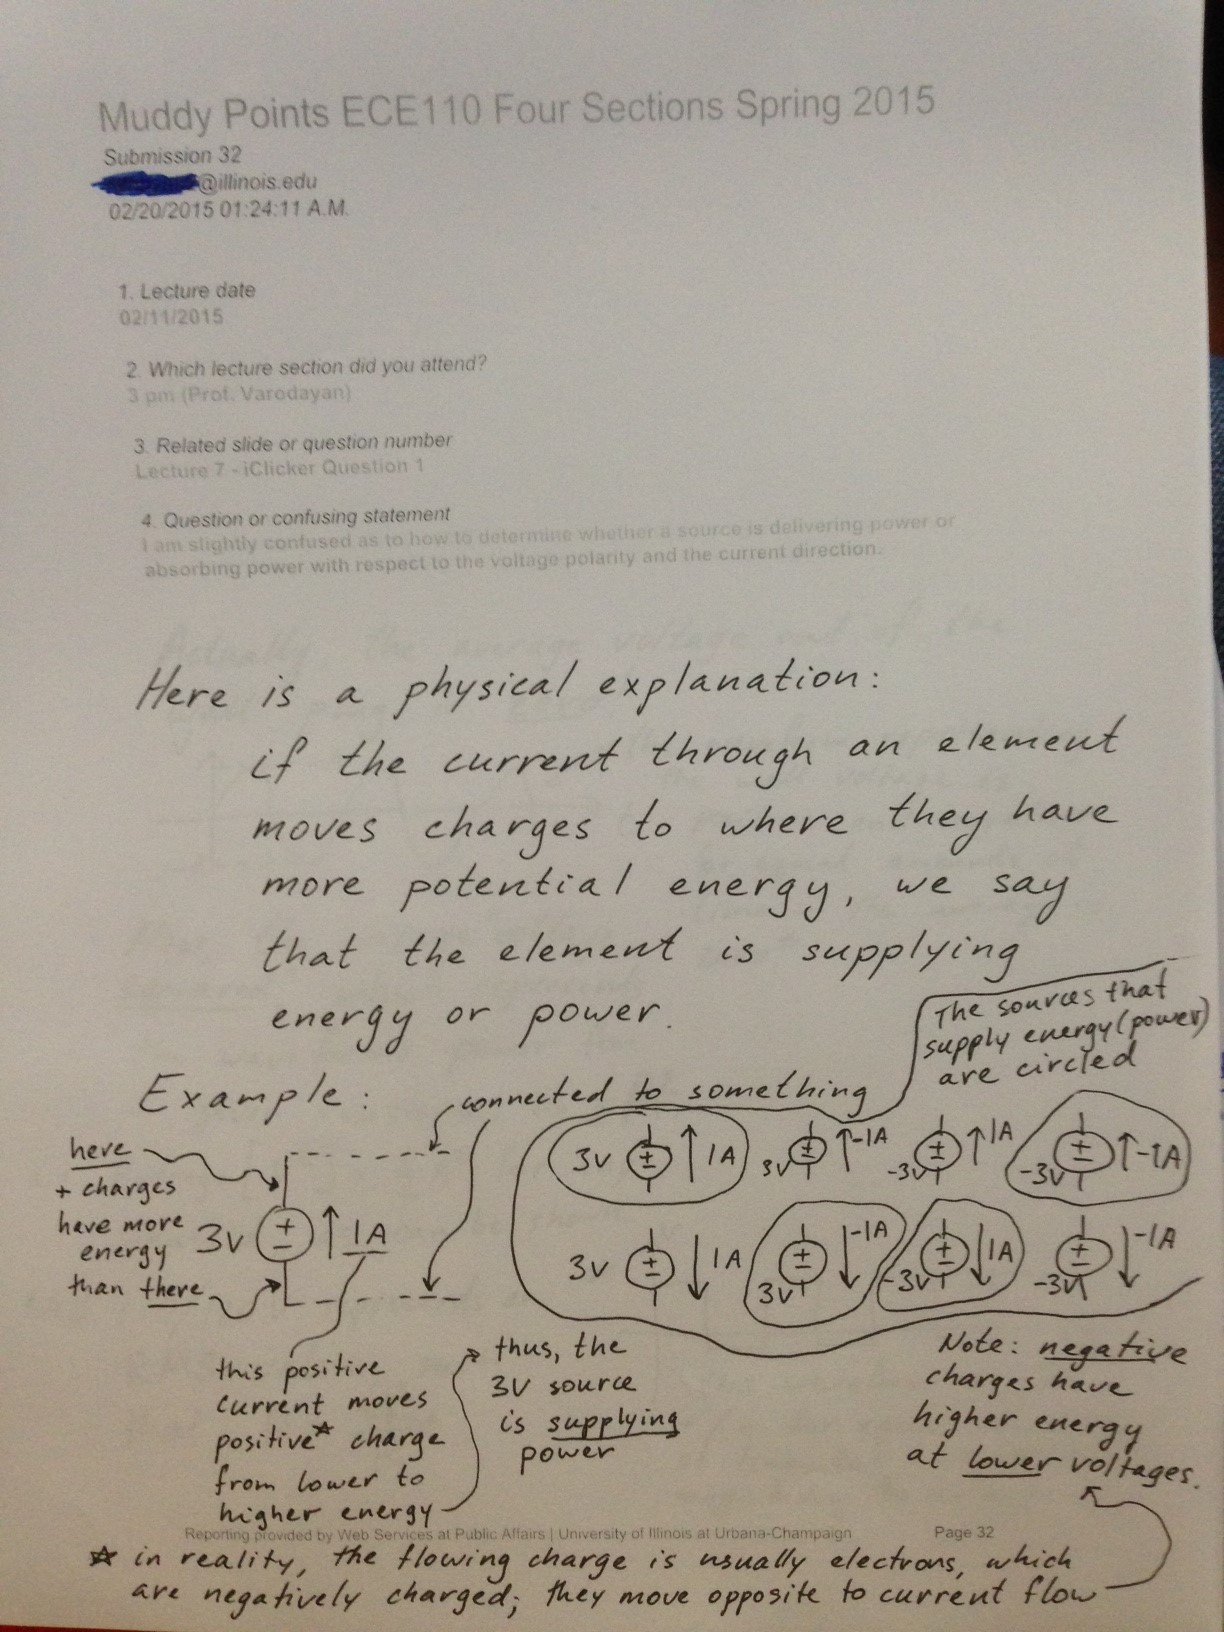 Muddy Points ECE110 Four Sections Spring 2015
Submission 32
@illinois.edu
02/20/2015 01:24:11 A.M.
1. Lecture date
02/11/2015
2. Which lecture section did you attend?
3 pm (Prof. Varodayan)
3. Related slide or question number
Lecture 7 - iClicker Question 1
4. Question or confusing statement
I am slightly confused as to how to determine whether a source is delivering power or
absorbing power with respect to the voltage polarity and the current direction.
Here is a physical explanation:
if the current through an element
moves charges to where they have
more potential energy, we say
that the element is supplying
energy or power.
The sources that
supply energy (power)
are circled
Example:
connected to something
here
+ charges
have more
energy
than there
3V + - 1A
3V + - 1A
3V + - -1A
-3V + - 1A
-3V + - -1A
3V + - 1A
3V + - -1A
-3V + - 1A
-3V + - -1A
this positive
current moves
positive* charge
from lower to
higher energy
thus, the
3V source
is supplying
power
Note: negative
charges have
higher energy
at lower voltages.
Reporting provided by Web Services at Public Affairs | University of Illinois at Urbana-Champaign Page 32
* in reality, the flowing charge is usually electrons, which
are negatively charged; they move opposite to current flow